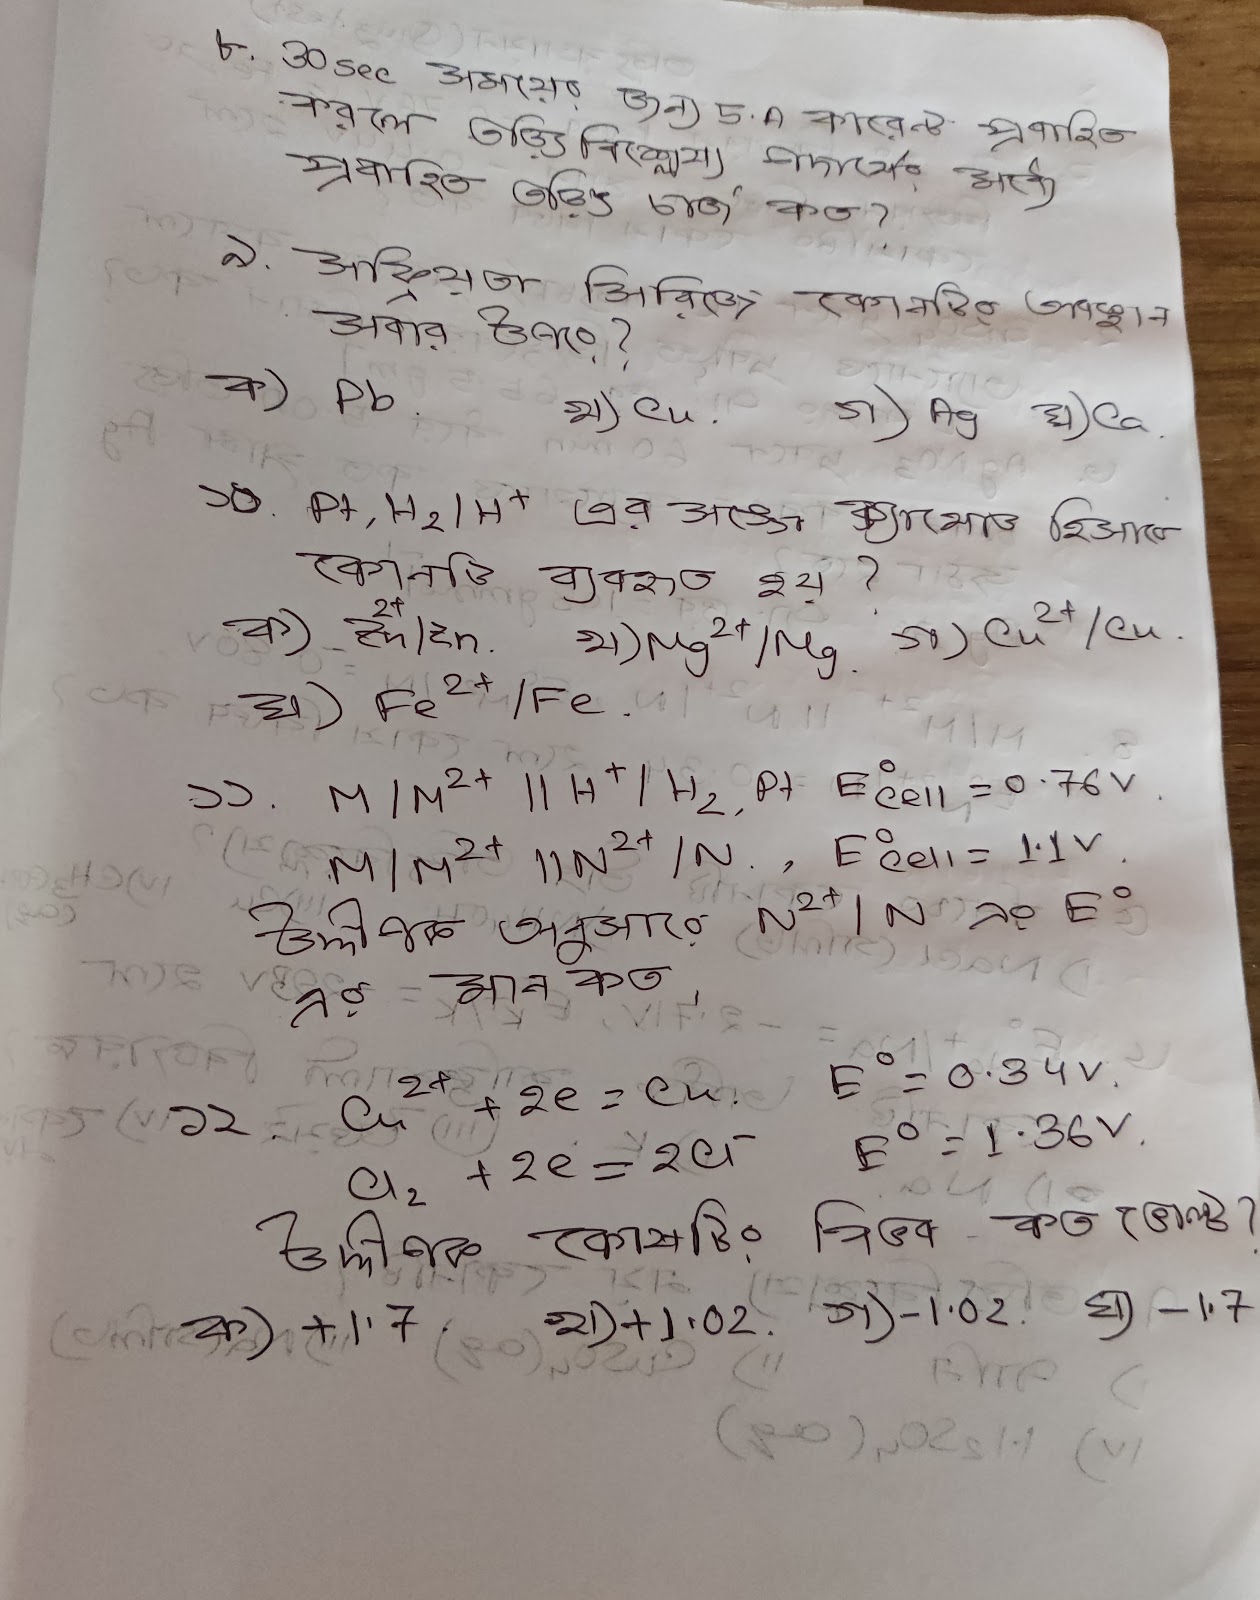 ৮. 30sec সময়ের জন্য 5.A কারেন্ট প্রবাহিত
করলে তড়িৎ বিশ্লেষ্য পদার্থের মধ্যে
প্রবাহিত তড়িৎ চার্জ কত?
৯. সক্রিয়তা সিরিজে কোনটির অবস্থান
সবার উপরে?
ক) Pb. খ) Cu. গ) Ag ঘ) Ca.
১০. Pt, H₂/H⁺ এর সঙ্গে ক্যাথোড হিসাবে
কোনটি ব্যবহৃত হয়?
ক) Zn²⁺/Zn. খ) Mg²⁺/Mg. গ) Cu²⁺/Cu.
ঘ) Fe²⁺/Fe.
১১. M/M²⁺ || H⁺/H₂, Pt E°cell = 0.76V.
M/M²⁺ || N²⁺/N., E°cell = 1.1V.
উদ্দীপক অনুসারে N²⁺/N এর E°
এর মান কত,
১২. Cu²⁺ + 2e = Cu. E° = 0.34V.
Cl₂ + 2e = 2Cl⁻ E° = 1.36V.
উদ্দীপক কোষটির বিভব কত ভোল্ট?
ক) +1.7. খ) +1.02. গ) -1.02. ঘ) -1.7